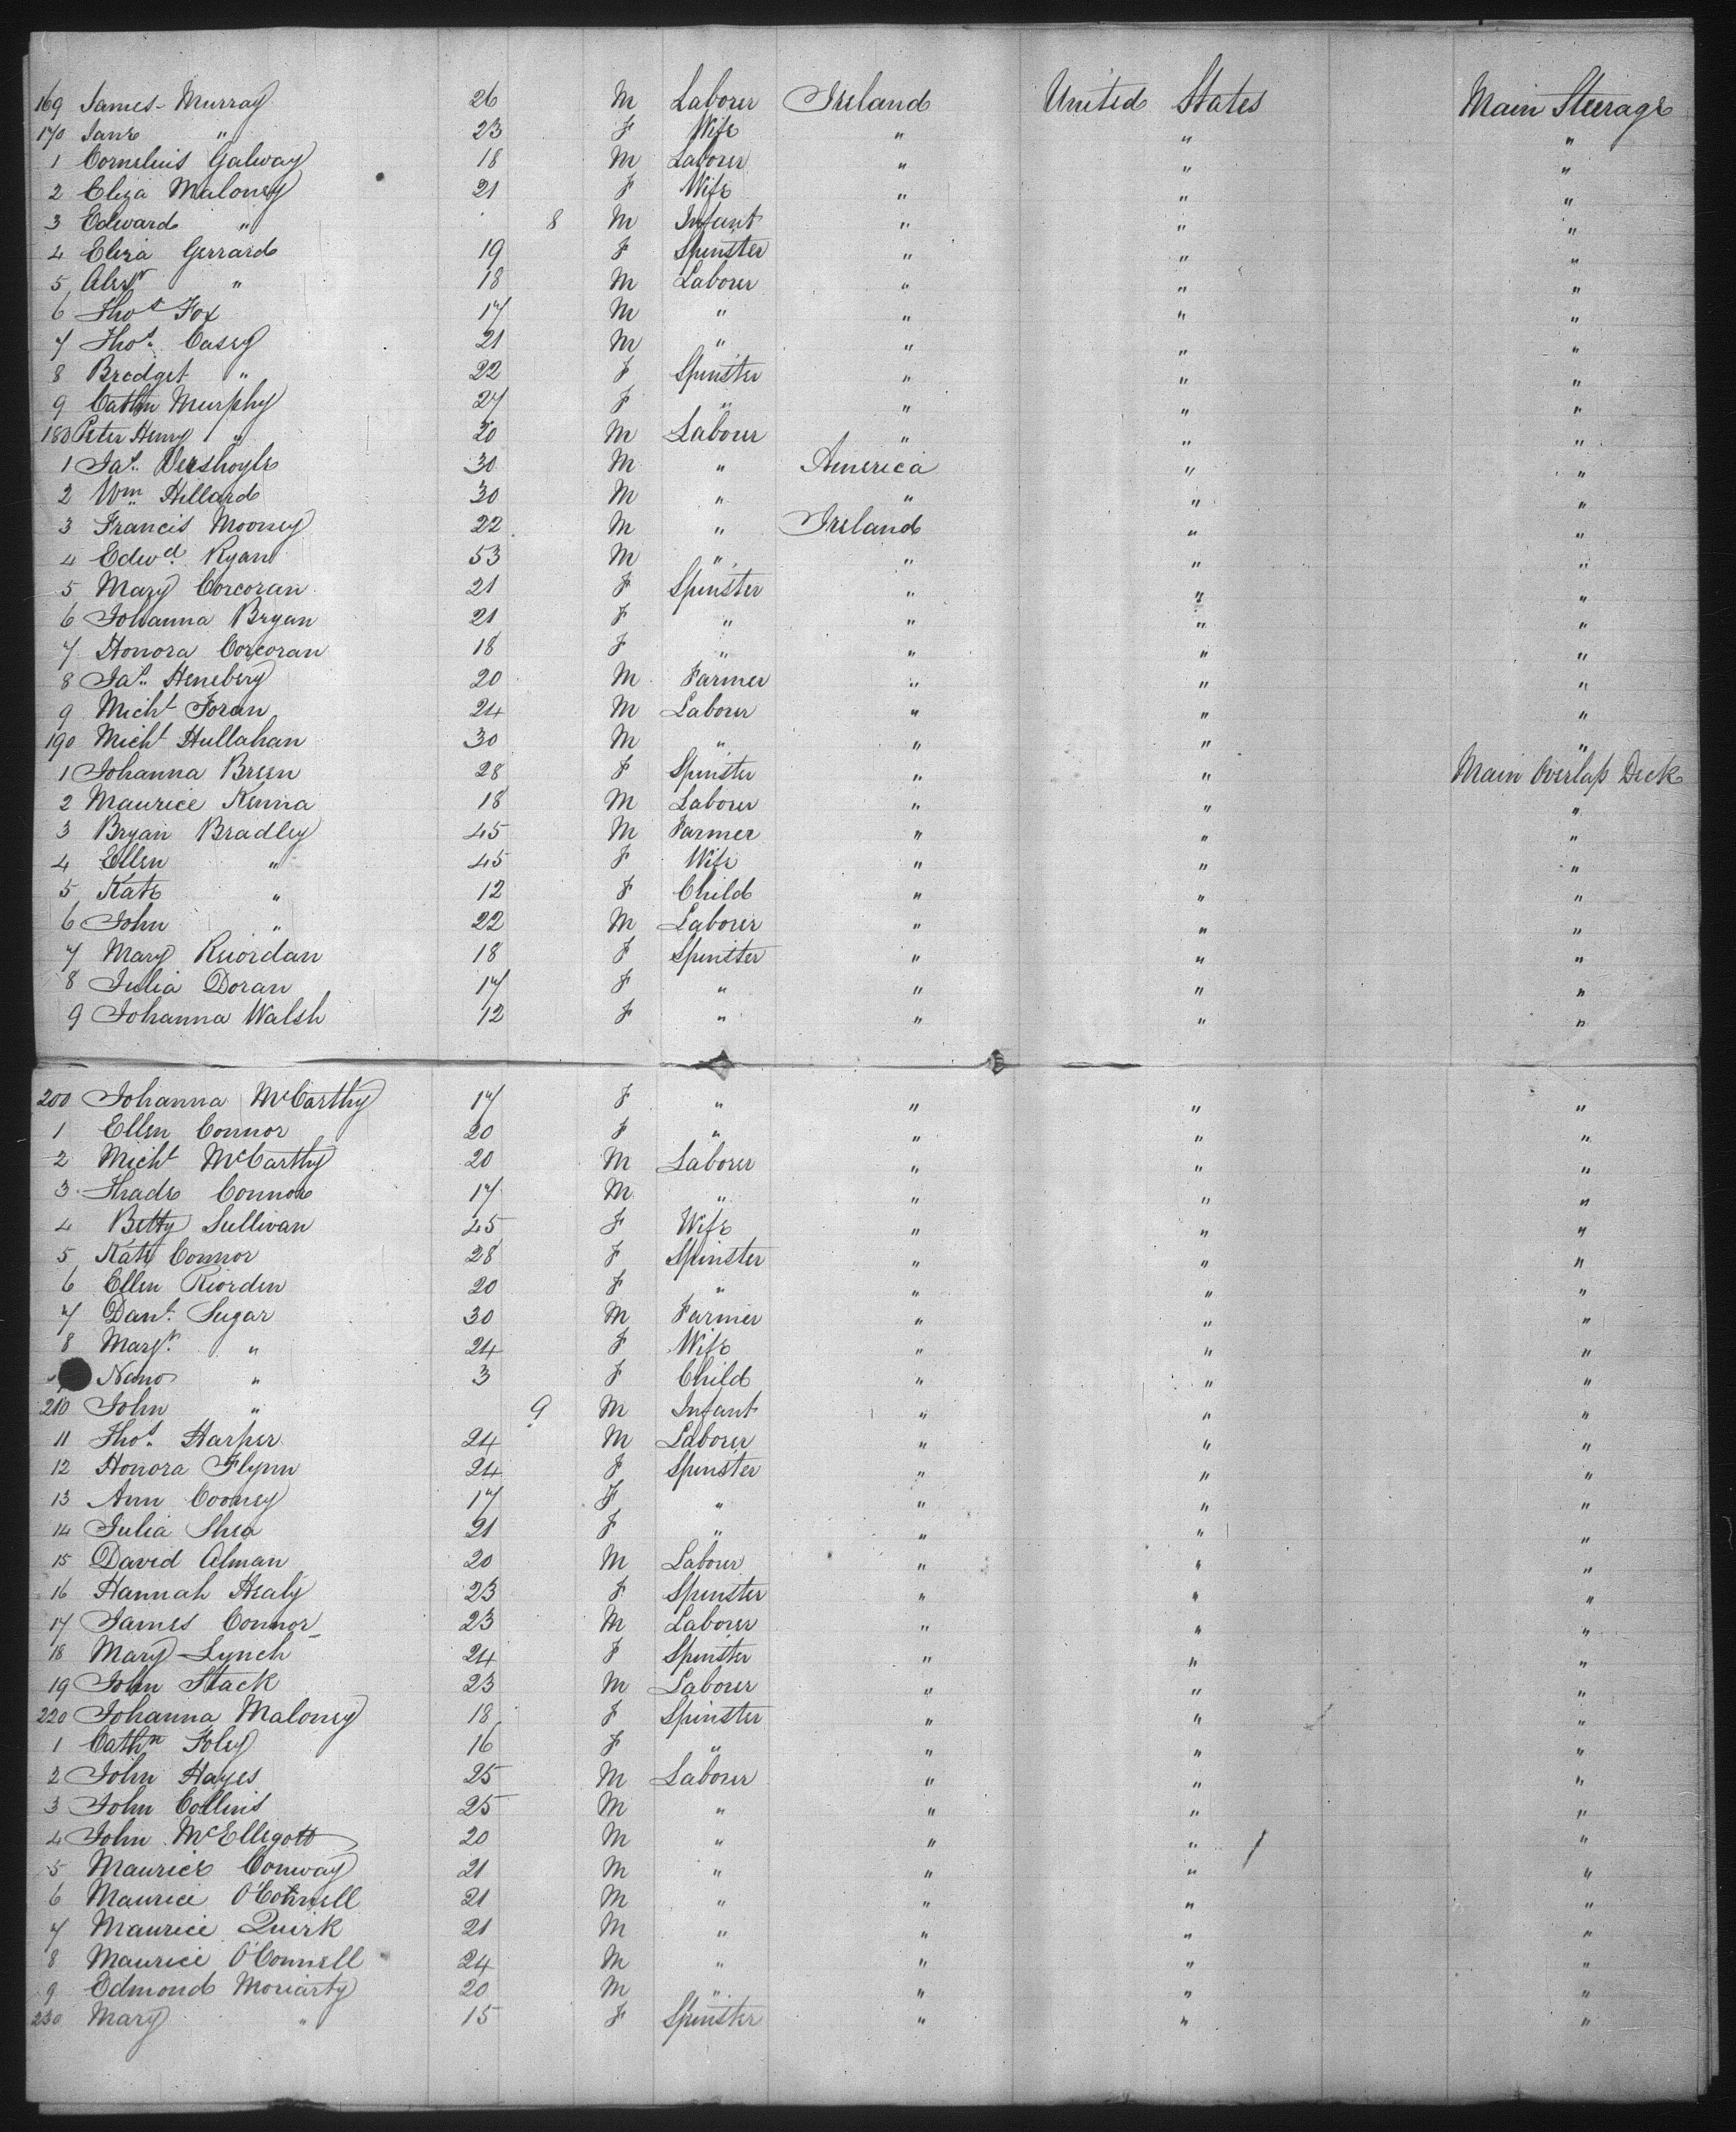 169 James Murray 26 M Laborer Ireland United States Main Steerage
170 Jane " 23 F Wife " " "
1 Cornelius Galway 18 M Laborer " " "
2 Eliza Maloney 21 F Wife " " "
3 Edward " 8 M Infant " " "
4 Eliza Gerrard 19 F Spinster " " "
5 Alexr " 18 M Laborer " " "
6 Thos Fox 17 M " " " "
7 Thos. Casey 21 M " " " "
8 Bredget " 22 F Spinster " " "
9 Cathn Murphy 27 F " " " "
180 Peter Henry " 20 M Laborer " " "
1 Jas. Vershoyle 30 M " America " "
2 Wm Hillard 30 M " " " "
3 Francis Mooney 22 M " Ireland " "
4 Edwd. Ryan 53 M " " " "
5 Mary Corcoran 21 F Spinster " " "
6 Johanna Bryan 21 F " " " "
7 Honora Corcoran 18 F " " " "
8 Jas. Heneberry 20 M Farmer " " "
9 Michl Foran 24 M Laborer " " "
190 Michl Hullahan 30 M " " " "
1 Johanna Breen 28 F Spinster " " Main Overlap Deck
2 Maurice Kenna 18 M Laborer " " "
3 Bryan Bradley 45 M Farmer " " "
4 Ellen " 45 F Wife " " "
5 Kate " 12 F Child " " "
6 John " 22 M Laborer " " "
7 Mary Reiordan 18 F Spinster " " "
8 Julia Doran 17 F " " " "
9 Johanna Walsh 12 F " " " "
200 Johanna McCarthy 17 F " " " "
1 Ellen Connor 20 F " " " "
2 Michl McCarthy 20 M Laborer " " "
3 Thade Connor 17 M " " " "
4 Betty Sullivan 45 F Wife " " "
5 Kate Connor 28 F Spinster " " "
6 Ellen Riorden 20 F " " " "
7 Danl. Sugar 30 M Farmer " " "
8 Margt. " 24 F Wife " " "
Nano " 3 F Child " " "
210 John " 9 M Infant " " "
11 Thos. Harper 24 M Laborer " " "
12 Honora Flynn 24 F Spinster " " "
13 Ann Cooney 17 F " " " "
14 Julia Shea 21 F " " " "
15 David Alman 20 M Laborer " " "
16 Hannah Healy 23 F Spinster " " "
17 James Connor 23 M Laborer " " "
18 Mary Lynch 24 F Spinster " " "
19 John Stack 23 M Laborer " " "
220 Johanna Maloney 18 F Spinster " " "
1 Cathn Foley 16 F " " " "
2 John Hayes 25 M Laborer " " "
3 John Collins 25 M " " " "
4 John McEllegott 20 M " " " "
5 Maurice Conway 21 M " " " "
6 Maurice O'Connell 21 M " " " "
7 Maurice Quirk 21 M " " " "
8 Maurice O'Connell 24 M " " " "
9 Edmond Moriarty 20 M " " " "
230 Mary " 15 F Spinster " " "